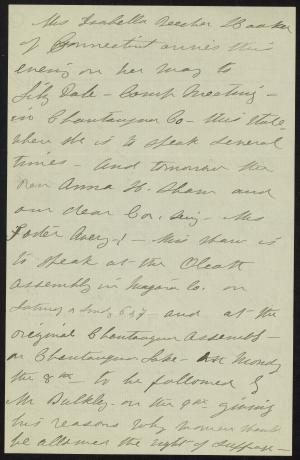 Mrs Isabella Beecher Hooker
of Connecticut arrives this
evening on her way to
Lily Dale - Camp Meeting -
in Chautauqua Co - this state
where she is to speak several
times - And tomorrow the
Rev Anna H. Shaw and
our dear Cor. Mrs
Foster Avery - Miss Shaw is
to speak at the Olcott
Assembly in Niagara Co. on
and at the
original Chautauqua Assembly -
on Chautauqua Lake - Monday
the 8th to be followed by
Mr Bulkley - on the 9th giving
his reasons why women should
be allowed the right of suffrage -